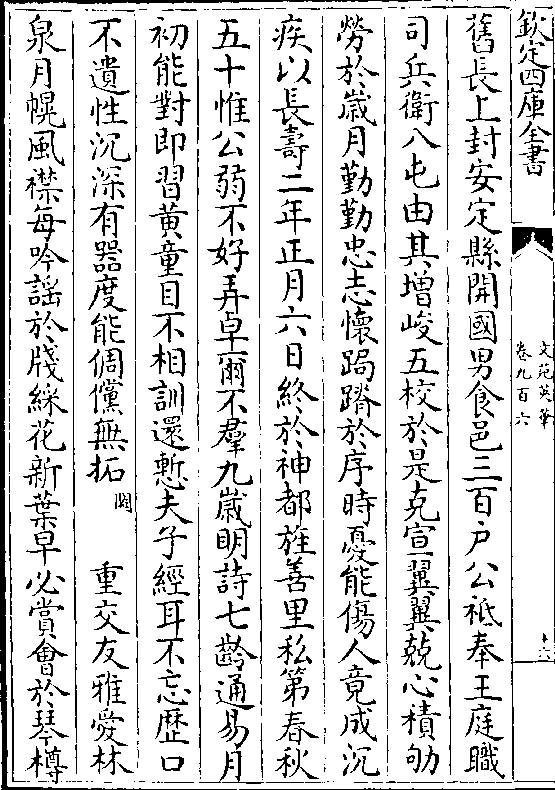 欽定四庫全書
文苑英華
卷九百六
舊長上封安定縣開國男食邑三百户公祗奉王庭職
司兵衛八屯由其增峻五校於是克宣翼翼兢心積劬
勞於歲月勤勤忠志懷跼蹐於序時憂能傷人竟成沉
疾以長壽二年正月六日終於神都旌善里私第春秋
五十惟公弱不好弄卓爾不羣九歲明詩七齡通易月
初能對即習黄童目不相訓還慙夫子經耳不忘歴口
不遺性沉深有器度能倜儻無拓闕重交友雅愛林
泉月幌風襟每吟謡於牋綵花新葉早必賞會於琴樽